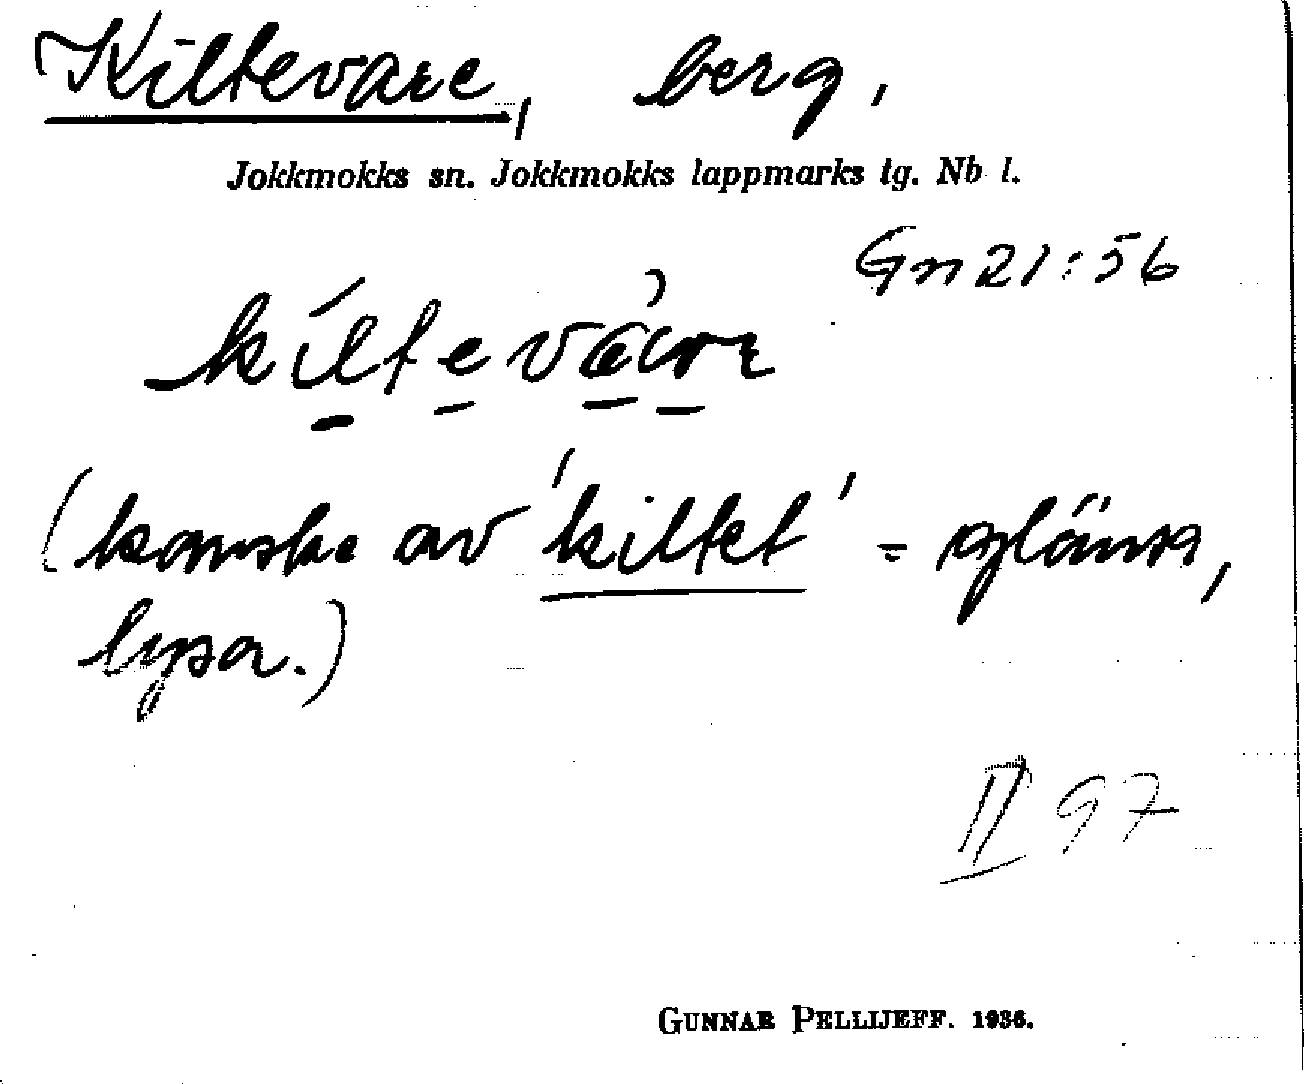 Kiltevare, berg,
Jokkmokks sn. Jokkmokks lappmarks tg. Nb l.
Gn 21:56
(kanske av 'kiltet' = glänsa,
lysa.)
II 97
GUNNAR PELLIJEFF. 1936.